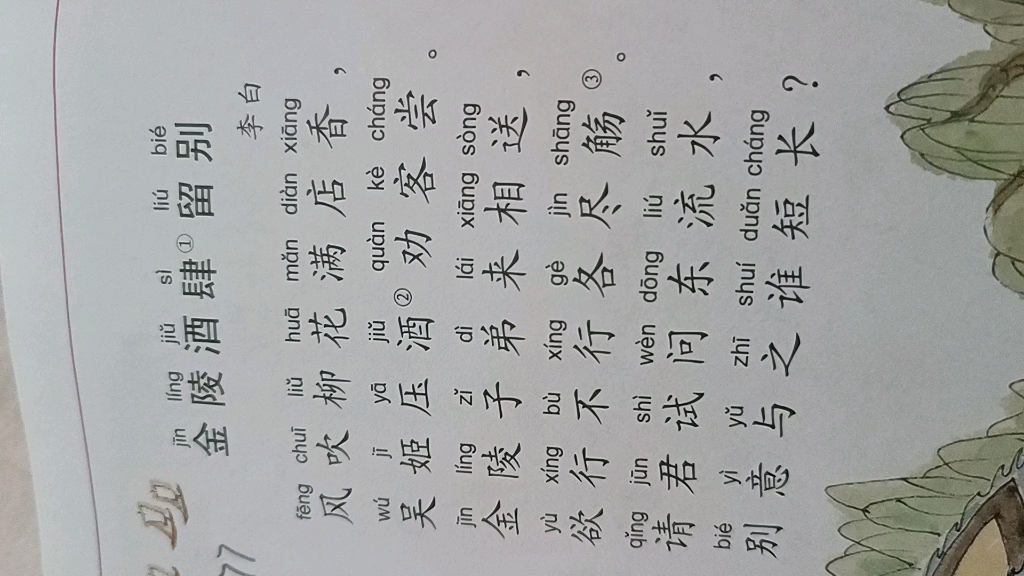 77
jīn líng jiǔ sì liú bié
金陵酒肆①留别
李白
fēng chuī liǔ huā mǎn diàn xiāng
风吹柳花满店香，
wú jī yā jiǔ quàn kè cháng
吴姬压酒②劝客尝。
jīn líng zǐ dì lái xiāng sòng
金陵子弟来相送，
yù xíng bù xíng gè jìn shāng
欲行不行各尽觞③。
qǐng jūn shì wèn dōng liú shuǐ
请君试问东流水，
bié yì yǔ zhī shuí duǎn cháng
别意与之谁短长？